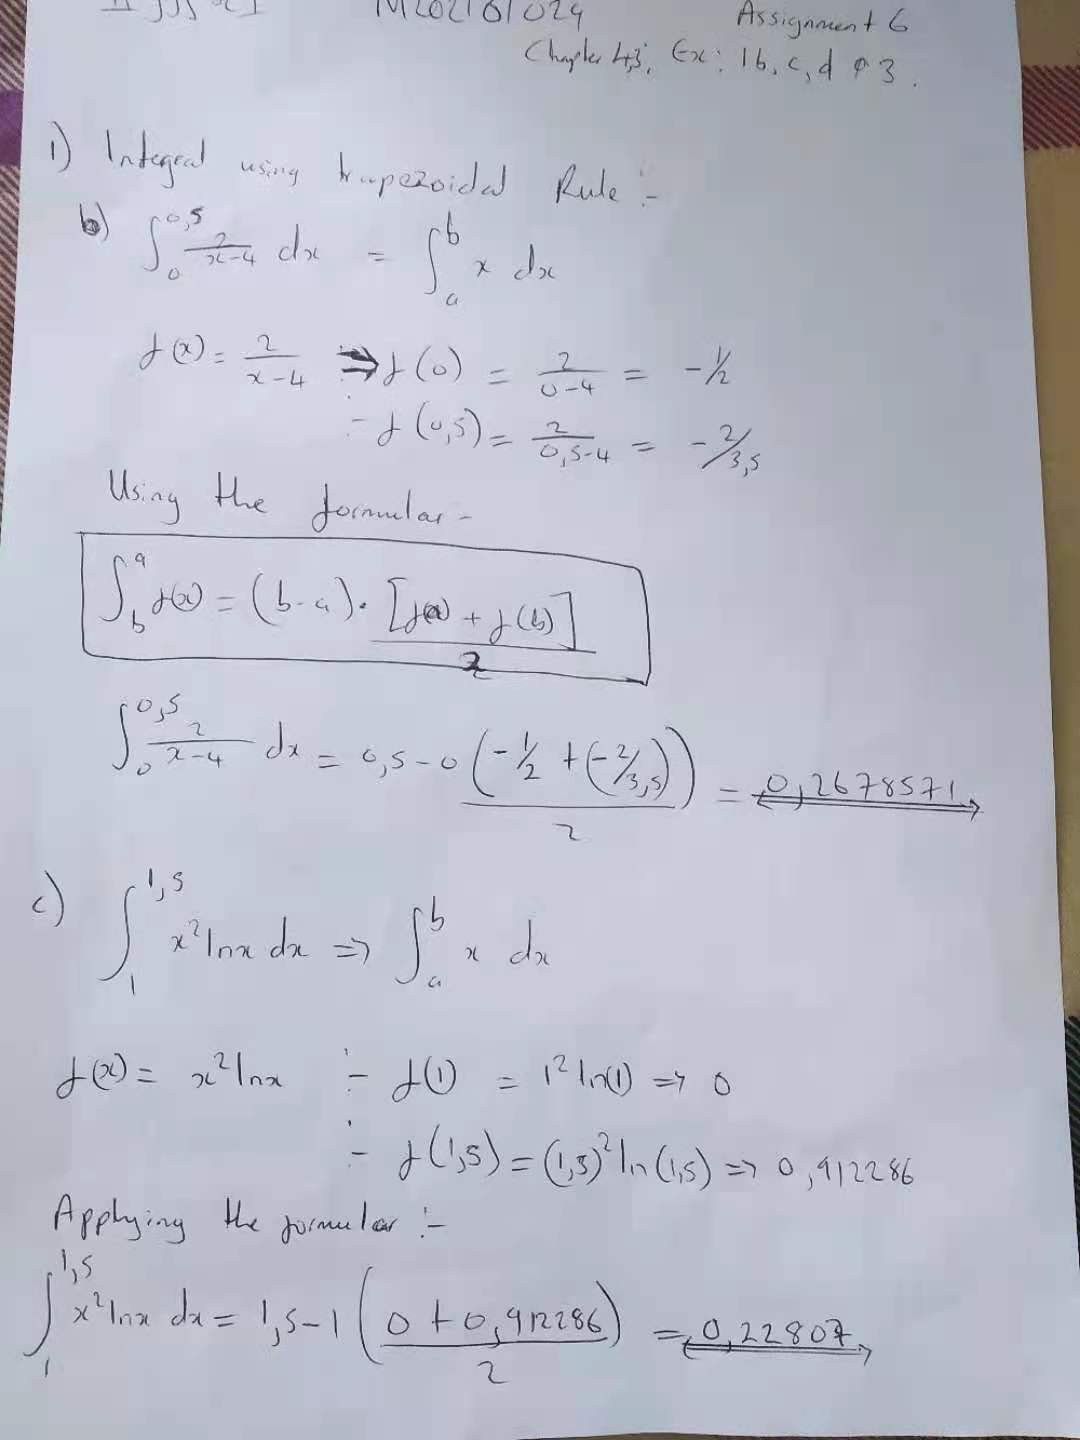 M202161029 Assignment 6
Chapter 4,3; Ex: 1b, c, d & 3.
1) Integral using trapezoidal Rule :-
b) ∫₀^0,5 2/(x-4) dx = ∫ₐ^b x dx
f(x) = 2/(x-4) ⇒ f(0) = 2/(0-4) = -1/2
:- f(0,5) = 2/(0,5-4) = -2/3,5
Using the formular -
∫_b^a f(x) = (b-a) · [f(a) + f(b)]/2
∫₀^0,5 2/(x-4) dx = 0,5-0 (-1/2 + (-2/3,5))/2 = 0,2678571
c) ∫₁^1,5 x² ln x dx ⇒ ∫ₐ^b x dx
f(x) = x² ln x :- f(1) = 1² ln(1) ⇒ 0
:- f(1,5) = (1,5)² ln (1,5) ⇒ 0,912286
Applying the formular :-
∫₁^1,5 x² ln x dx = 1,5-1 (0 + 0,912286)/2 = 0,22807